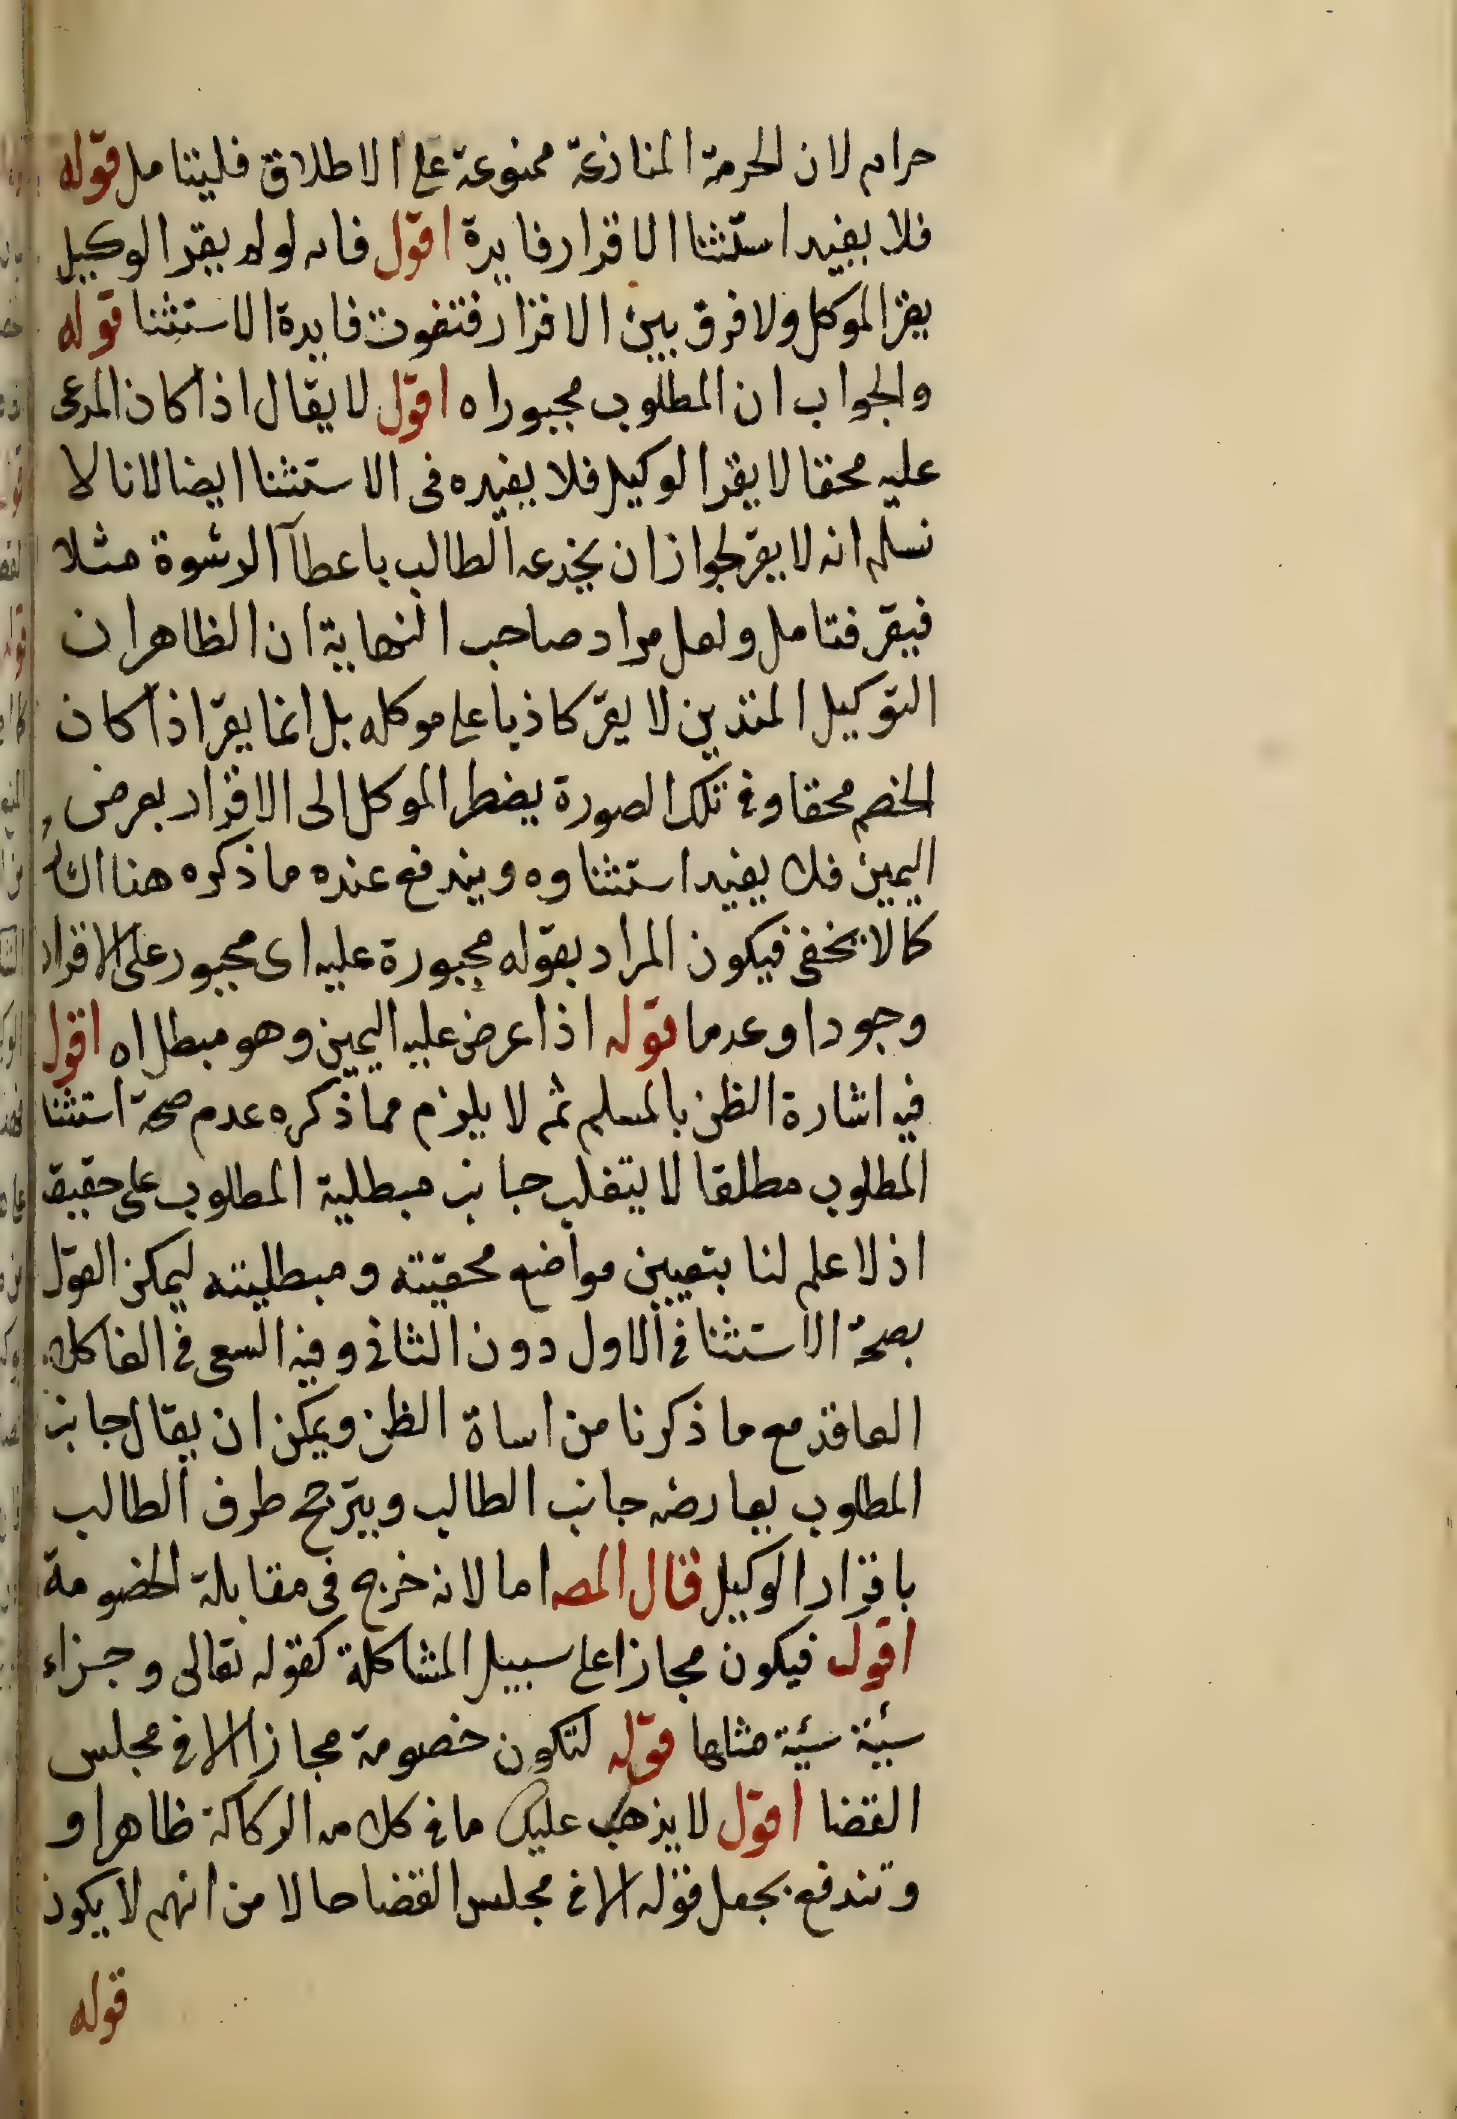 حرام لان الحرمة المنازعة ممنوعة على الاطلاق فليتامل قوله
فلا يفيد استثنا الاقرار فايدة اقول فانه لو لم يقر الوكيل
يقر الموكل ولا فرق بين الاقرار فتفوت فايدة الاستثنا قوله
والجواب ان المطلوب مجبور اه اقول لا يقال اذا كان المدعى
عليه محقا لا يقر الوكيل فلا يفيده فى الاستثنا ايضا لانا لا
نسلم انه لا يقر لجواز ان يخدعه الطالب باعطآ الرشوة مثلا
فيقر فتامل ولعل مراد صاحب النهاية ان الظاهر ان
التوكيل المتدين لا يقر كاذبا على موكله بل انما يقر اذا كان
الخصم محقا وفى تلك الصورة يضطر الموكل الى الاقرار بعرض
اليمين فلا يفيد استثناوه ويندفع عنده ما ذكره هنا
كما لا يخفى فيكون المراد بقوله مجبورة عليه اى مجبور على الاقرار
وجودا وعدما قوله اذا عرض عليه اليمين وهو مبطل اه اقول
فيه اشارة الظن بالمسلم ثم لا يلزم مما ذكره عدم صحة استثنا
المطلوب مطلقا لا يتغلب جانب مبطلية المطلوب على حقيقة
اذ لا علم لنا بتعيين مواضع محقيته ومبطليته ليمكن القول
بصحة الاستثنا فى الاول دون الثانى وفيه السعى فى الغا كلام
العاقد مع ما ذكرنا من اساة الظن ويمكن ان يقال جانب
المطلوب يعارضه جانب الطالب ويترجح طرف الطالب
باقرار الوكيل قال المصه اما لانه خرج فى مقابلة الخصومة
اقول فيكون مجازا على سبيل المشاكلة كقوله تعالى وجزاء
سيئة سيئة مثلها قوله لتكون خصومة مجازا الا فى مجلس
القضا اقول لا يذهب عليك ما فى كلامه من الركاكة ظاهرا و
وتندفع بجعل قوله الا فى مجلس القضا حالا من انهم لا يكون
قوله